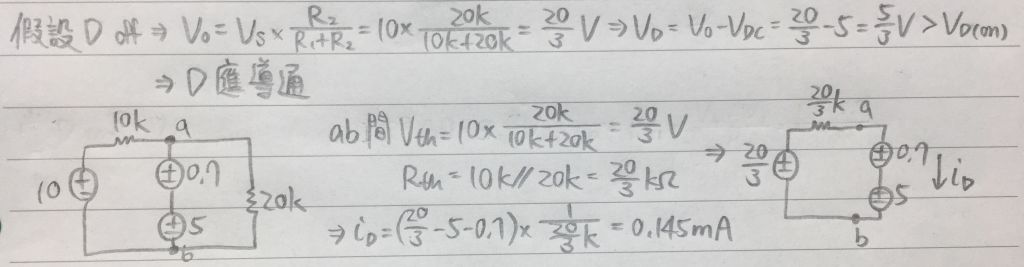 假設D off ⇒ Vo = Vs × R2/(R1+R2) = 10 × 20k/(10k+20k) = 20/3 V ⇒ VD = Vo - VDC = 20/3 - 5 = 5/3 V > VD(on)
⇒ D 應導通
10k a
10
0.7
5
20k
b
ab間 Vth = 10 × 20k/(10k+20k) = 20/3 V
Rth = 10k // 20k = 20/3 kΩ
⇒ iD = (20/3 - 5 - 0.7) × 1/(20/3 k) = 0.145mA
⇒
20/3 k a
20/3
0.7
↓iD
5
b